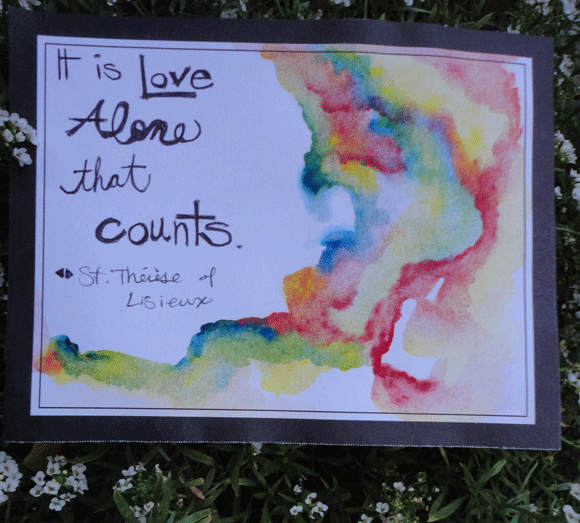 It is Love
Alone
that
counts.
St. Thérèse of
Lisieux